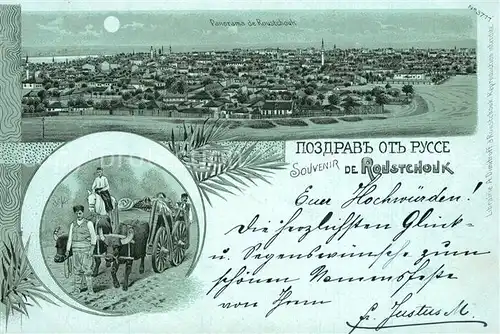 Panorama de Roustchouk
ПОЗДРАВЪ ОТЪ РУССЕ
SOUVENIR DE ROUSTCHOUK
Euer Hochwürden!
Die herzlichsten Glück-
u. Segenswünsche zum
schönen Namensfeste
von Ihrem
fr. Justus M.